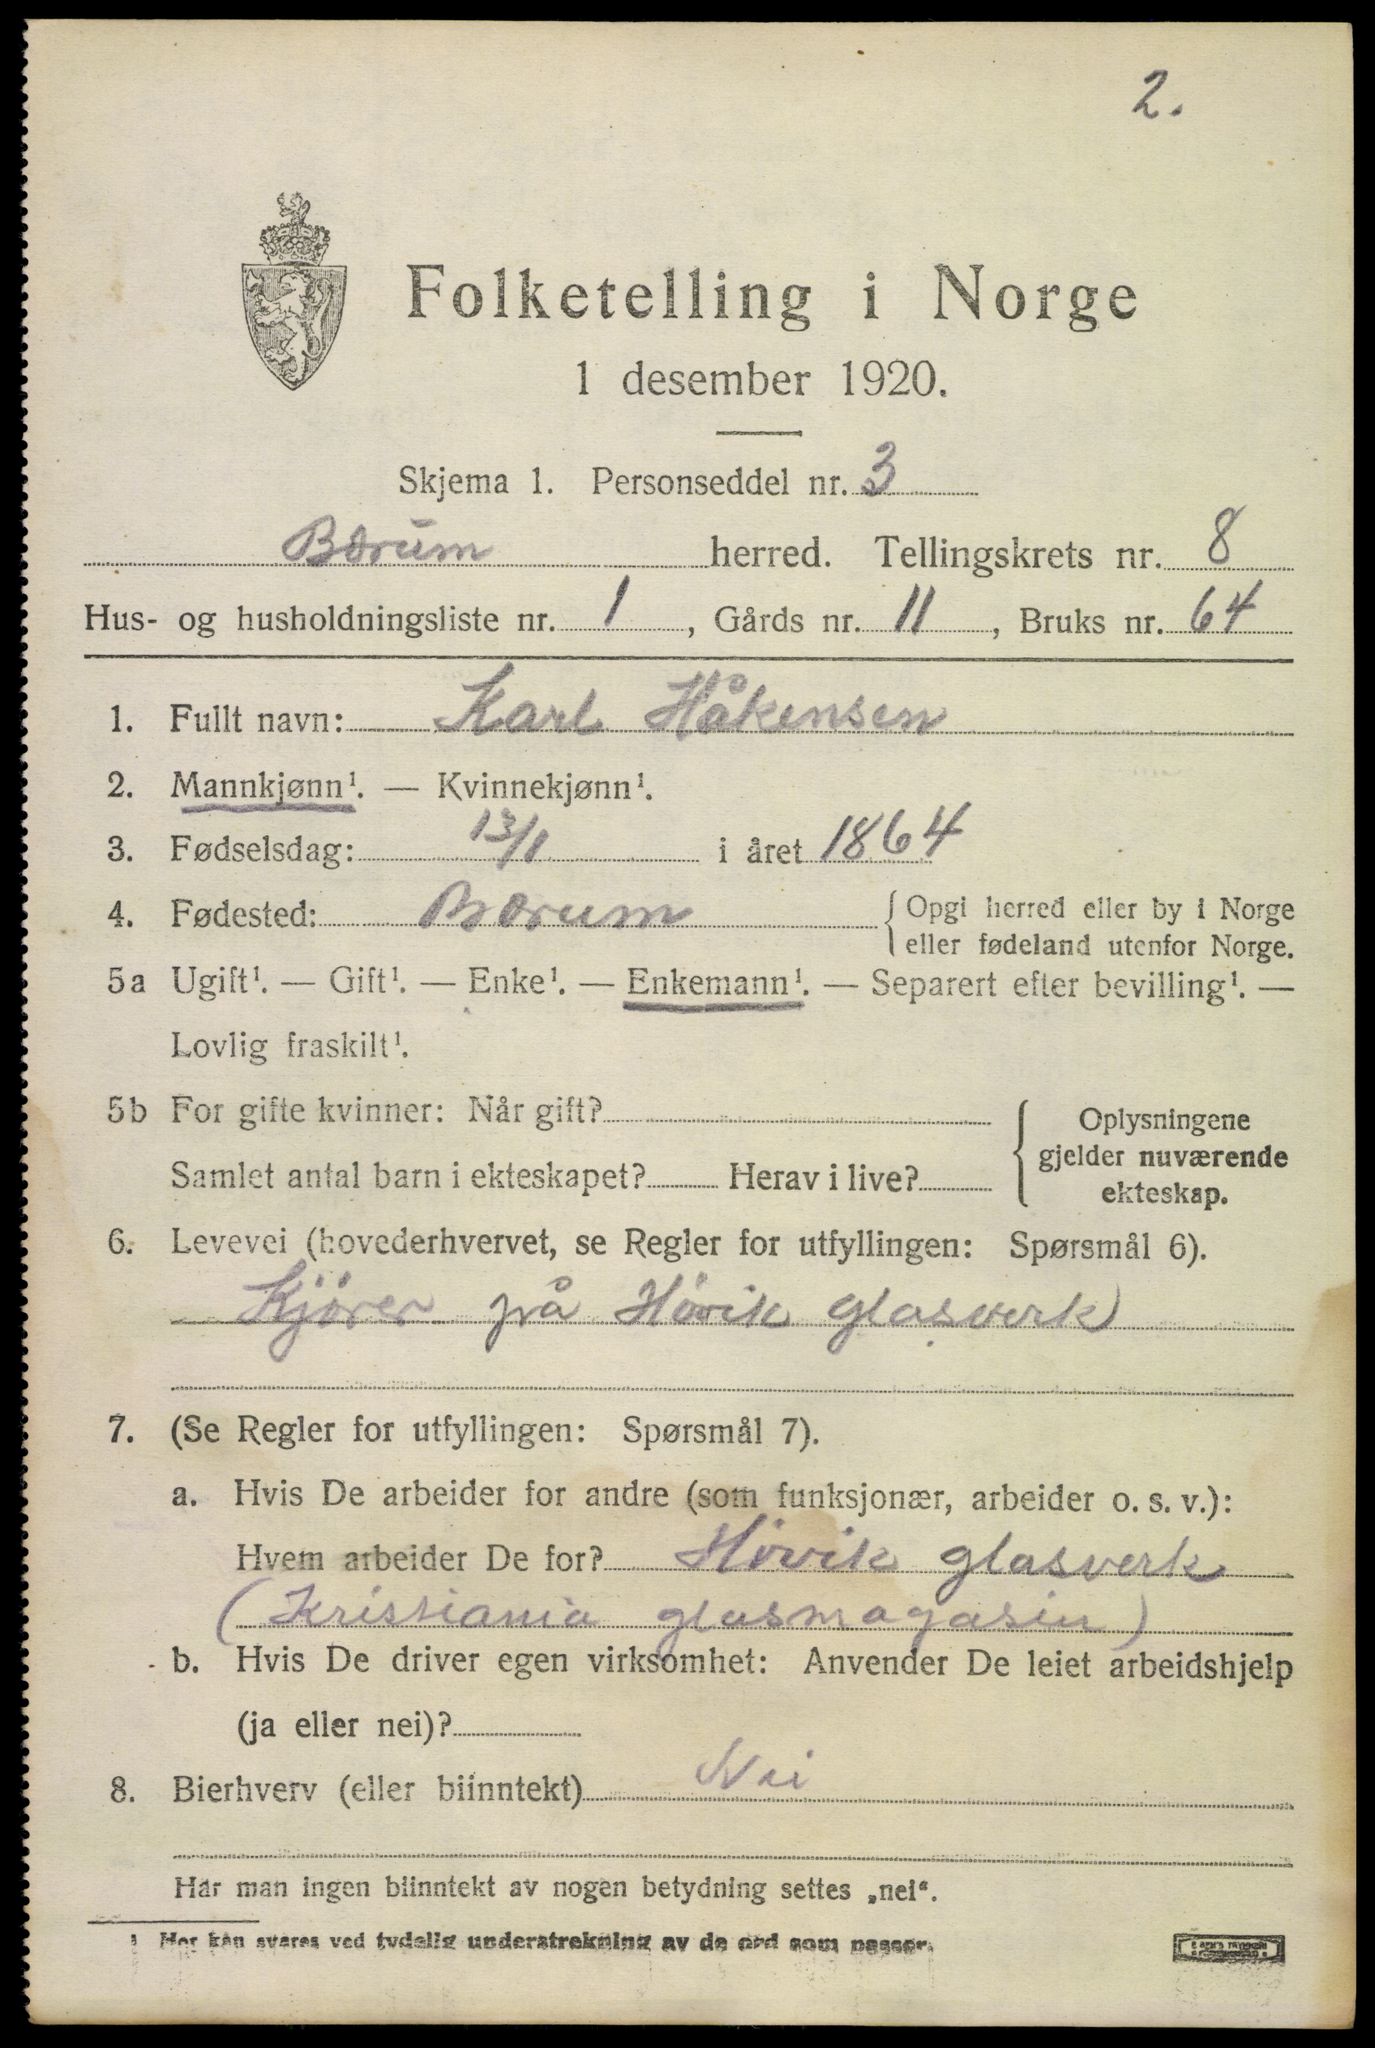 2.
Folketelling i Norge
1 desember 1920.
Skjema 1. Personseddel nr. 3
Bærum herred. Tellingskrets nr. 8
Hus- og husholdningsliste nr. 1, Gårds nr. 11, Bruks nr. 64
1. Fullt navn: Karl Håkensen
2. Mannkjønn¹. — Kvinnekjønn¹.
3. Fødselsdag: 13/1 i året 1864
4. Fødested: Bærum {Opgi herred eller by i Norge
eller fødeland utenfor Norge.
5a Ugift¹. — Gift¹. — Enke¹. — Enkemann¹. — Separert efter bevilling¹. —
Lovlig fraskilt¹.
5b For gifte kvinner: Når gift?
Samlet antal barn i ekteskapet? Herav i live?
Oplysningene
gjelder nuværende
ekteskap.
6. Levevei (hovederhvervet, se Regler for utfyllingen: Spørsmål 6).
Kjører på Høvik glasverk
7. (Se Regler for utfyllingen: Spørsmål 7).
a. Hvis De arbeider for andre (som funksjonær, arbeider o. s. v.):
Hvem arbeider De for? Høvik glasverk
(Kristiania glasmagasin)
b. Hvis De driver egen virksomhet: Anvender De leiet arbeidshjelp
(ja eller nei)?
8. Bierhverv (eller biinntekt) Nei
Har man ingen biinntekt av nogen betydning settes „nei“.
¹ Her kan svares ved tydelig understrekning av de ord som passer.